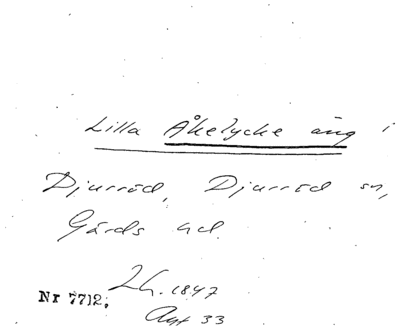 Lilla Åkelycke äng i
Djurröd, Djurröd sn,
Gärds hd.
Lh. 1847
Nr 7712.
Akt 33